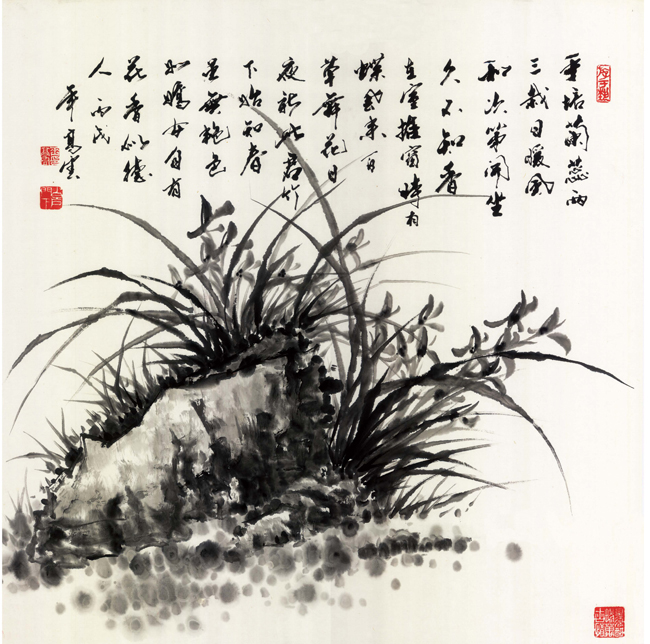 手培蘭蕊兩
三栽日暖風
和次第開坐
久不知香
在室推窗時有
蝶飛來百
草花日
夜此君竹
下始知春
無艷色
如嬌女自有
花香似德
人丙戌
年